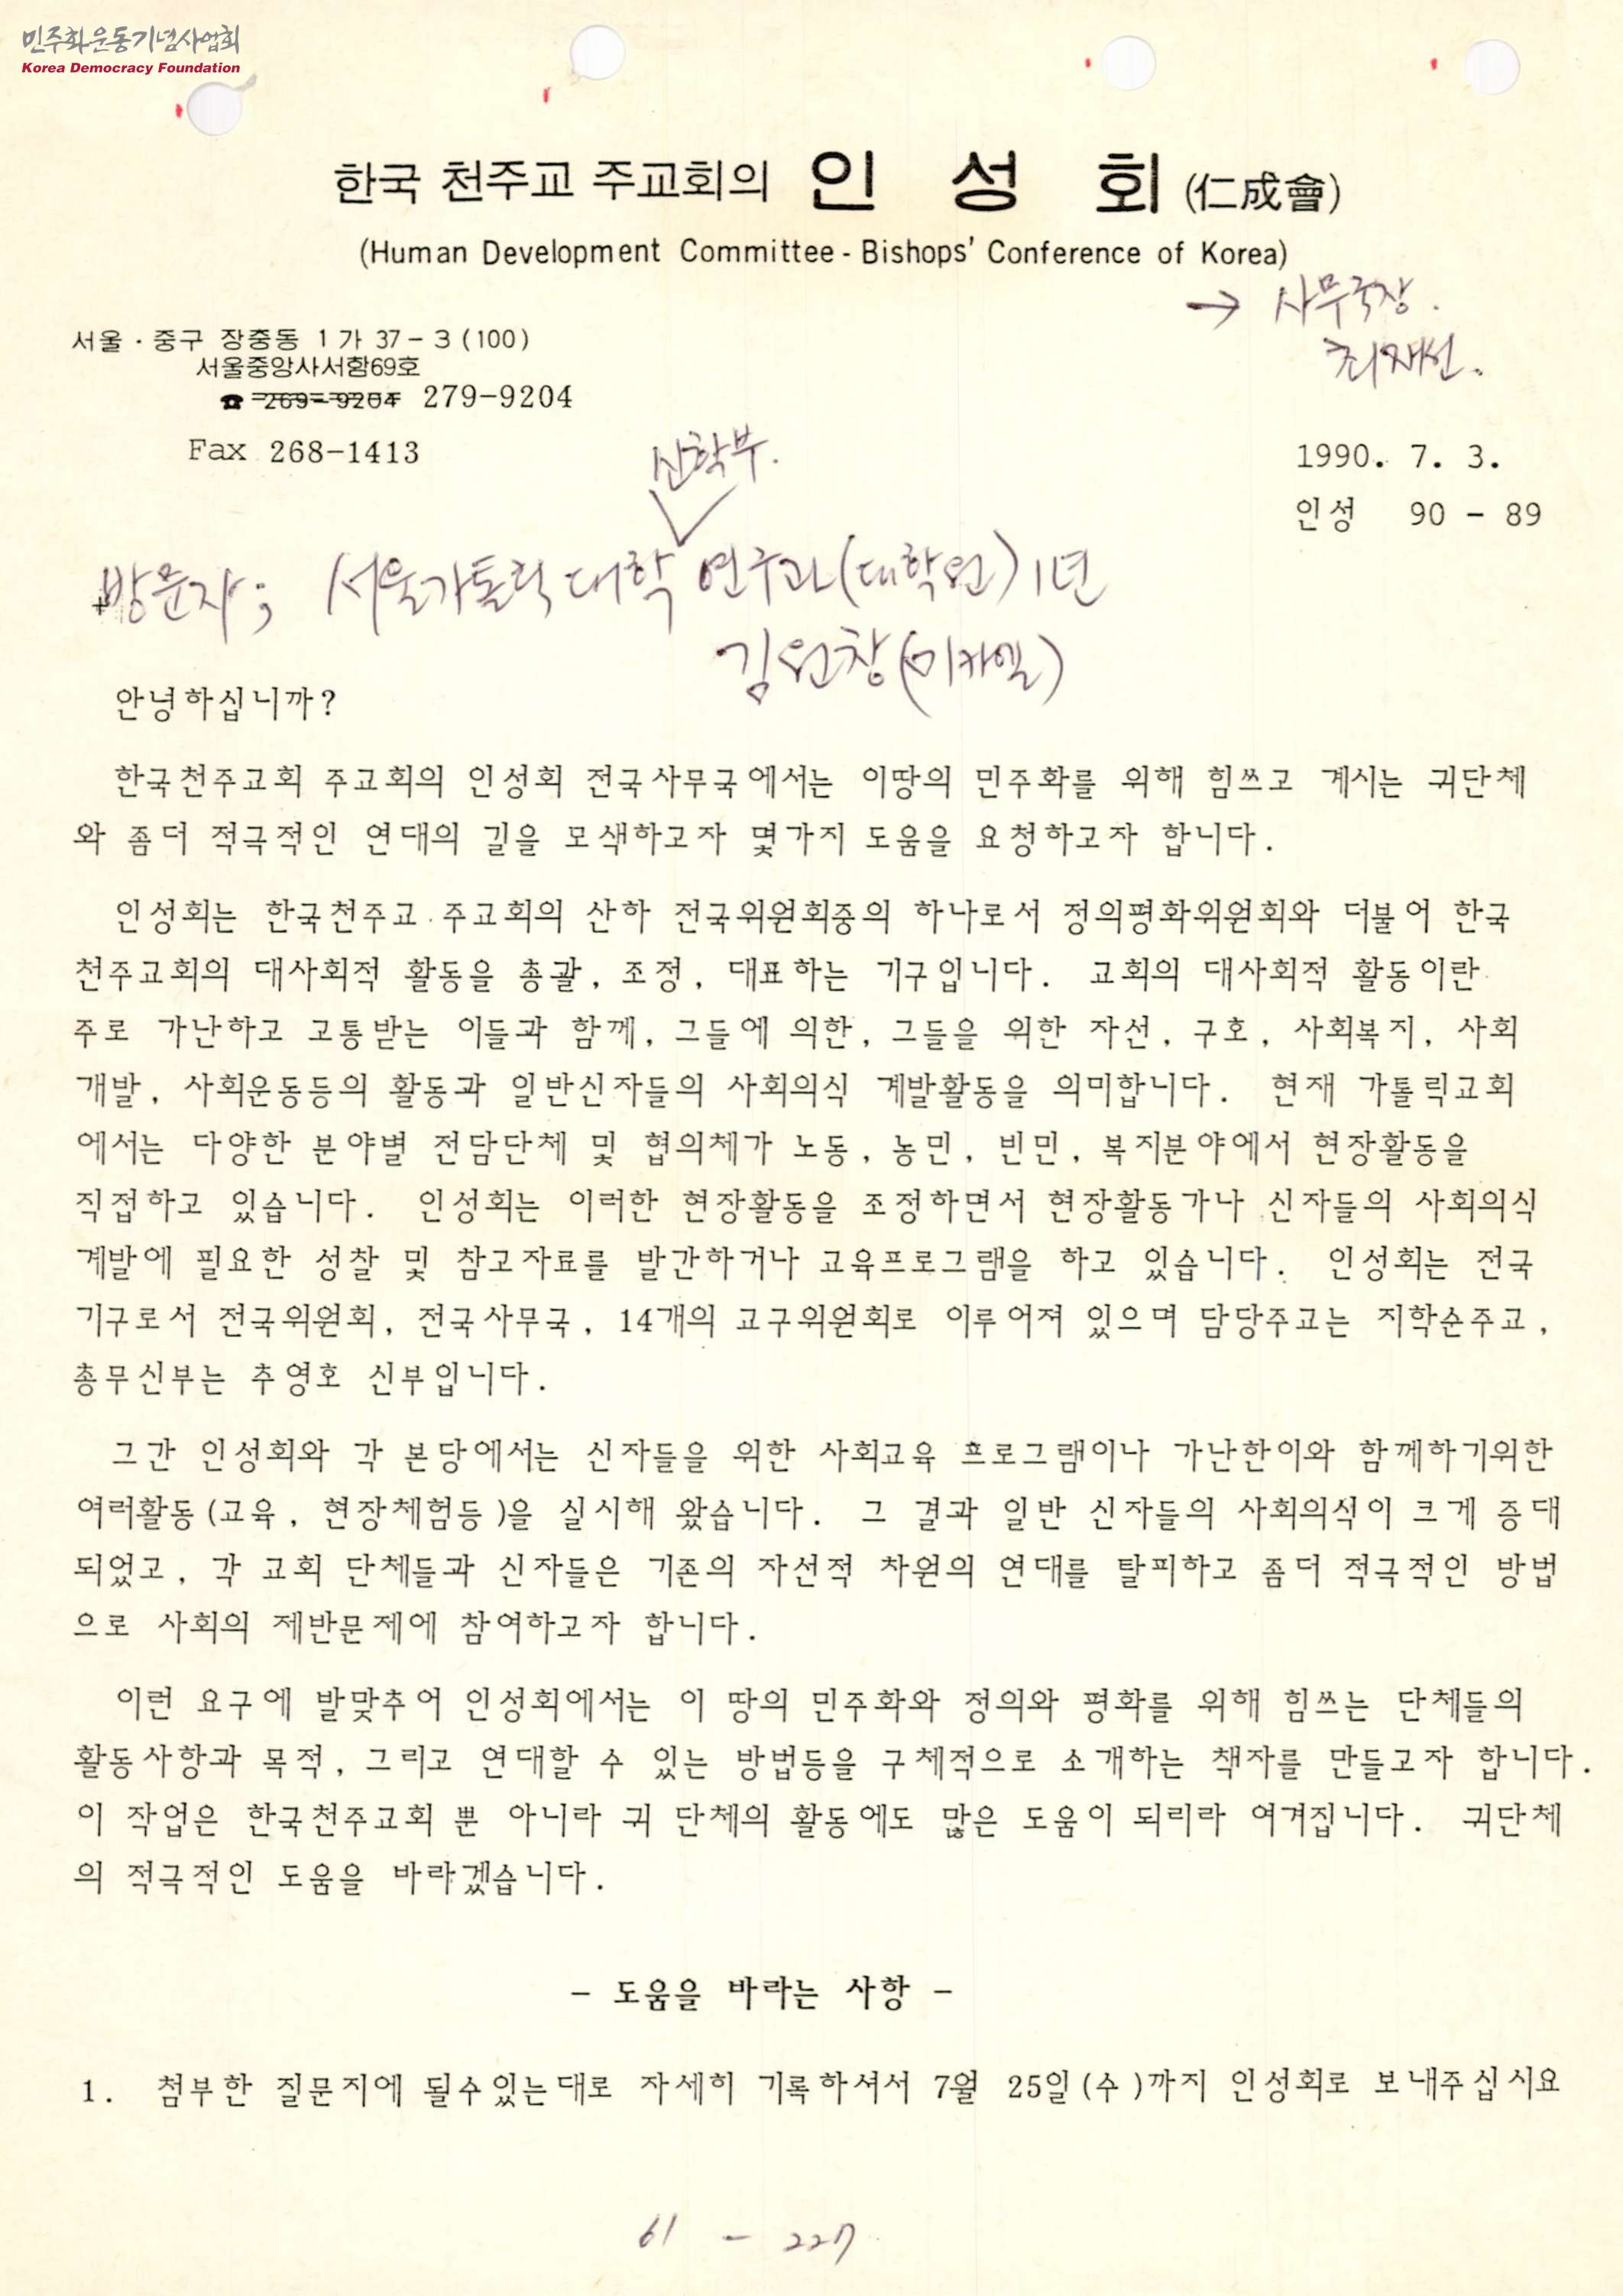 민주화운동기념사업회
Korea Democracy Foundation
한국 천주교 주교회의 인 성 회 (仁成會)
(Human Development Committee - Bishops' Conference of Korea)
→ 사무국장.
최재선.
서울 · 중구 장충동 1가 37 - 3 (100)
서울중앙사서함69호
☎ 269-9204 279-9204
Fax 268-1413
1990. 7. 3.
인성 90 - 89
신학부.
방문자; 서울가톨릭대학 연구과(대학원) 1년
김원창(미카엘)
안녕하십니까?
한국천주교회 주교회의 인성회 전국사무국에서는 이땅의 민주화를 위해 힘쓰고 계시는 귀단체
와 좀더 적극적인 연대의 길을 모색하고자 몇가지 도움을 요청하고자 합니다.
인성회는 한국천주교 주교회의 산하 전국위원회중의 하나로서 정의평화위원회와 더불어 한국
천주교회의 대사회적 활동을 총괄, 조정, 대표하는 기구입니다. 교회의 대사회적 활동이란
주로 가난하고 고통받는 이들과 함께, 그들에 의한, 그들을 위한 자선, 구호, 사회복지, 사회
개발, 사회운동등의 활동과 일반신자들의 사회의식 계발활동을 의미합니다. 현재 가톨릭교회
에서는 다양한 분야별 전담단체 및 협의체가 노동, 농민, 빈민, 복지분야에서 현장활동을
직접하고 있습니다. 인성회는 이러한 현장활동을 조정하면서 현장활동가나 신자들의 사회의식
계발에 필요한 성찰 및 참고자료를 발간하거나 교육프로그램을 하고 있습니다. 인성회는 전국
기구로서 전국위원회, 전국사무국, 14개의 교구위원회로 이루어져 있으며 담당주교는 지학순주교,
총무신부는 추영호 신부입니다.
그간 인성회와 각 본당에서는 신자들을 위한 사회교육 프로그램이나 가난한이와 함께하기위한
여러활동(교육, 현장체험등)을 실시해 왔습니다. 그 결과 일반 신자들의 사회의식이 크게 증대
되었고, 각 교회 단체들과 신자들은 기존의 자선적 차원의 연대를 탈피하고 좀더 적극적인 방법
으로 사회의 제반문제에 참여하고자 합니다.
이런 요구에 발맞추어 인성회에서는 이 땅의 민주화와 정의와 평화를 위해 힘쓰는 단체들의
활동사항과 목적, 그리고 연대할 수 있는 방법등을 구체적으로 소개하는 책자를 만들고자 합니다.
이 작업은 한국천주교회 뿐 아니라 귀 단체의 활동에도 많은 도움이 되리라 여겨집니다. 귀단체
의 적극적인 도움을 바라겠습니다.
- 도움을 바라는 사항 -
1. 첨부한 질문지에 될수있는대로 자세히 기록하셔서 7월 25일(수)까지 인성회로 보내주십시요
61 - 227